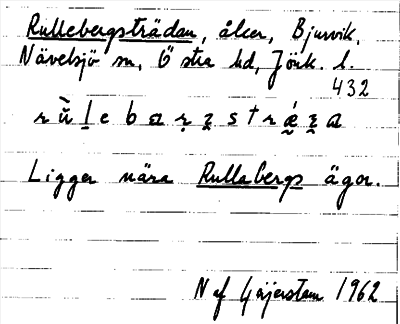 Rullebergsträdan, åker, Bjurvik,
Nävelsjö sn, Östra hd, Jönk. l.
432
Ligger nära Rullabergs ägor.
N af Geijerstam 1962